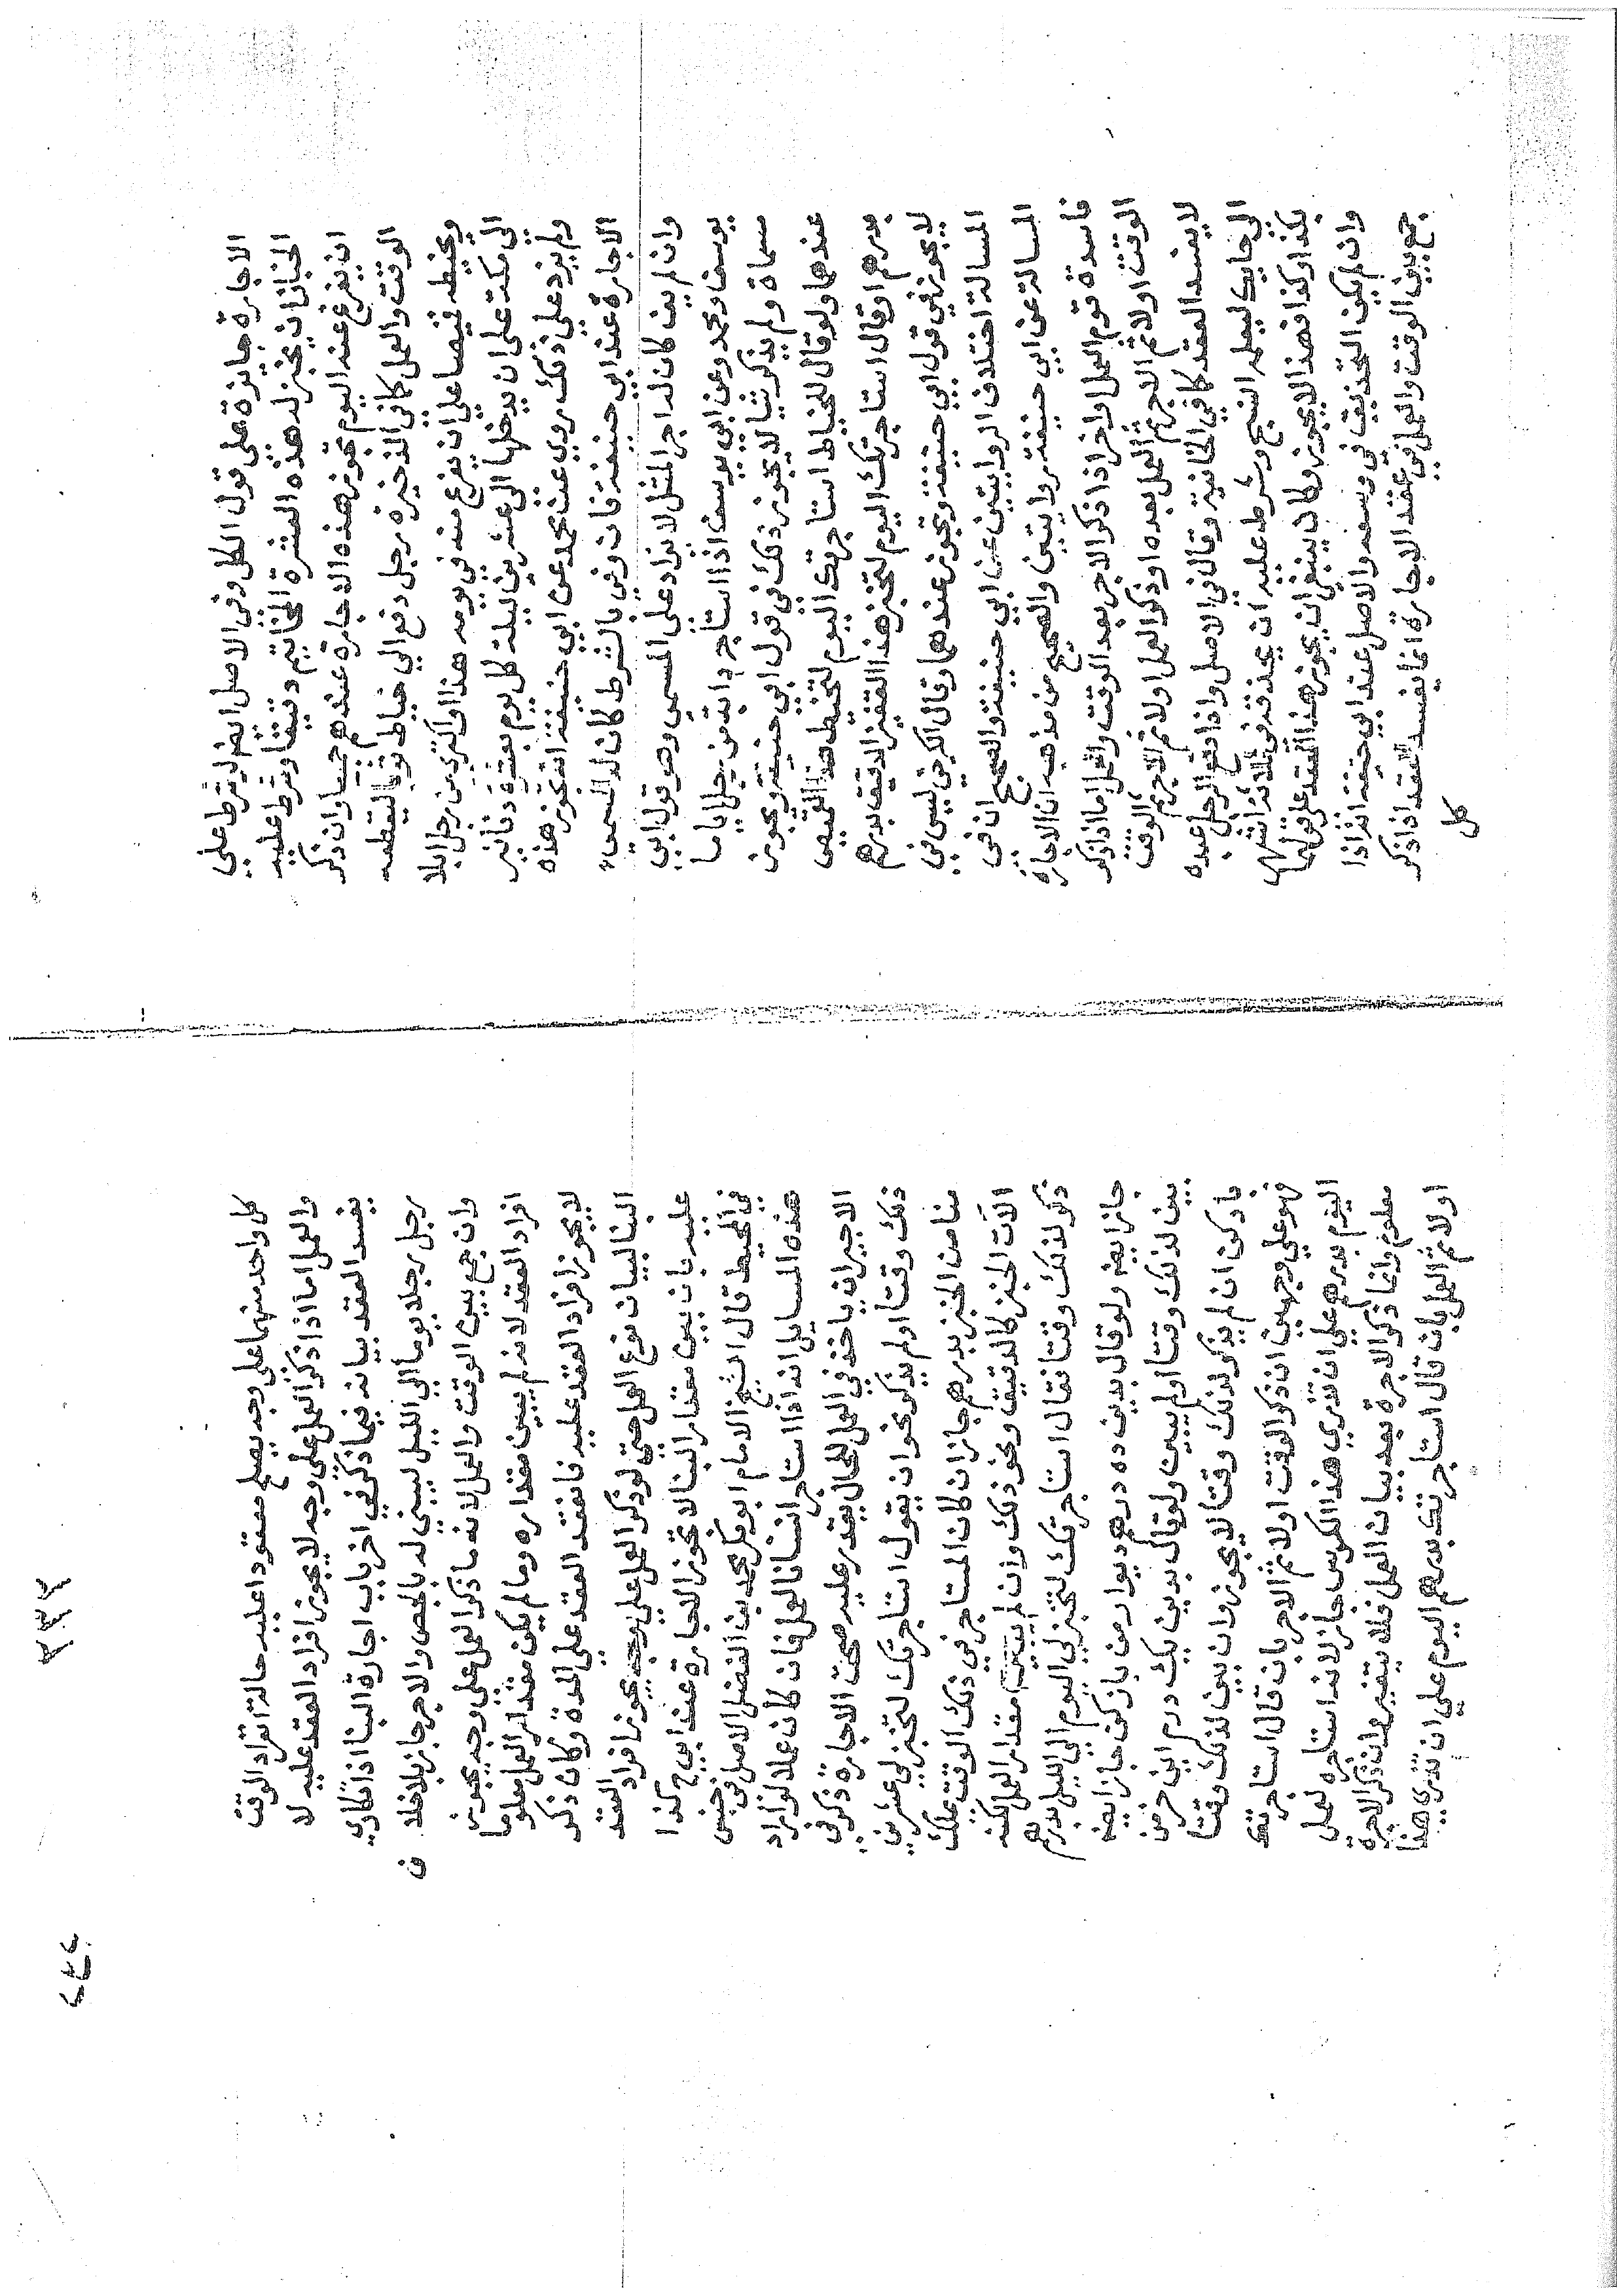 الاجارة جايزة علي قول الكل وفي الاصل ايضا لو شرط علي
الخباز ان يخبز له هذه العشرة المخاتيم دقيقا وشرط عليه
ان يفرغ عنه اليوم تجوز هذه الاجارة عندهم جميعا وان ذكر
الوقت والعمل كما في الذخيرة رجل دفع الي خياط ثوبا ليقطعه
ويخيطه قميصا علي ان يفرغ منه في يومه هذا او اكتري من رجل ابلا
الي مكة علي ان يدخلها الي عشرين ليلة كل يوم بعشرة دنانير
ولم يزد علي ذلك روي عن محمد عن ابي حنيفة انه تجوز هذه
الاجارة عند ابي حنيفة فان وفي بالشرط كان له المسمي
وان لم يف كان له اجر المثل لا يزاد علي المسمي وهو قول ابي
يوسف ومحمد وعن ابي يوسف اذا استاجر دابة من رجل اياما
مسماة ولم يذكر شيا لا يجوز ذلك في قول ابي حنيفة ويجوز
عندهما ولو قال للخياط استاجرتك اليوم لتخيط هذا القميص
بدرهم او قال استاجرتك اليوم لتخبز هذا القفيز الدقيق بدرهم
لا يجوز في قول ابي حنيفة ويجوز عندهما وقال الكرخي ليس في
المسالة اختلاف الروايتين عن ابي حنيفة والصحيح ان في
المسالة عن ابي حنيفة روايتين والصحيح من مذهبه ان الاجارة
فاسدة قدم العمل او اخر اذا ذكر الاجر بعد الوقت والعمل اما اذا ذكر
الوقت اولا ثم الاجر ثم العمل بعده او ذكر العمل اولا ثم الاجر ثم الوقت
لا يفسد العقد كما في الخانية وقال في الاصل واذا دفع الرجل عبده
الي حايك ليعلمه النسج وشرط عليه ان يحذقه في ثلاثة اشهر
بكذا وكذا فهذا لا يجوز وكان ينبغي ان يجوز هذا العقد علي قولهما
وان لم يكن التحذيق في وسعه والاصل عند ابي حنيفة انه اذا
جمع بين الوقت والعمل في عقد الاجارة انما يفسد العقد اذا ذكر
كل
كل واحد منهما علي وجه يصلح معقودا عليه حالة انفراد الوقت
والعمل اما اذا ذكر العمل علي وجه لا يجوز افراد العقد عليه لا
يفسد العقد بيانه فيما ذكر في اخر باب اجارة البنا اذا تكاري
رجل رجلا يوما الي الليل ليبني له بالجص والاجر جاز بلا خلاف
وان جمع بين الوقت والعمل لانه ما ذكر العمل علي وجه يجوز
افراد العقد لانه لم يبين مقداره وما لم يكن مقدار العمل معلوما
لا يجوز افراد العقد عليه فانعقد العقد علي المدة وكان ذكر
البنا لبيان نوع العمل حتي لو ذكر العمل علي وجه يجوز افراد العقد
عليه بان بين مقدار البنا لا تجوز الاجارة عند ابي ح كذا
في المحيط قال الشيخ الامام ابو بكر محمد بن الفضل الاصل في جنس
هذه المسايل انه اذا استاجر انسانا لعمل فان كان عملا لو اراد
الاجير ان ياخذ في العمل للحال يقدر عليه صحت الاجارة ذكر في
ذلك وقتا او لم يذكر نحو ان يقول استاجرتك لتخبز لي عشرين
منا من الخبز بدرهم جاز ان كان المستاجر في ذلك الوقت يملك
الات الخبز كالدقيق ونحو ذلك وان لم يبين مقدار العمل لكنه
ذكر لذلك وقتا فقال استاجرتك لتخبز لي اليوم الي الليل بدرهم
جاز ايضا ولو قال بدين ده درم ديوار من باز كن جاز ايضا
بين لذلك وقتا او لم يبين ولو قال بدين يك درم اين خرمن
باد كن ان لم يذكر لذلك وقتا لا يجوز وان بين لذلك وقتا
فهو علي وجهين ان ذكر الوقت اولا ثم الاجر بان قال استاجرتك
اليوم بدرهم علي ان تذري هذا الكدس جاز لانه استاجره لعمل
معلوم وانما ذكر الاجرة بعد بيان العمل فلا يتغير وان ذكر الاجرة
اولا ثم العمل بان قال استاجرتك بدرهم اليوم علي ان تذري هذا